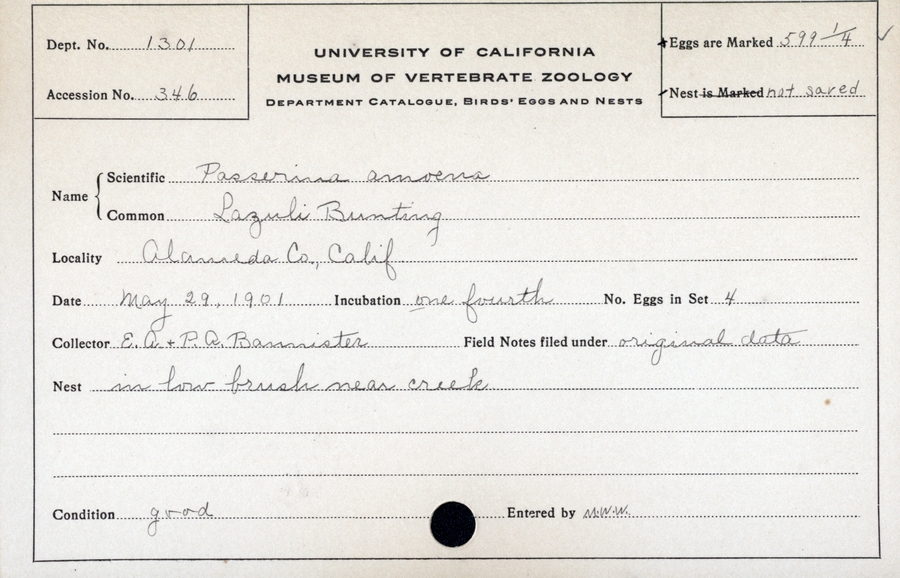 Dept. No. 1301
Accession No. 346
UNIVERSITY OF CALIFORNIA
MUSEUM OF VERTEBRATE ZOOLOGY
DEPARTMENT CATALOGUE, BIRDS' EGGS AND NESTS
Eggs are Marked 599 1/4 ✓
Nest is Marked not saved
Name { Scientific Passerina amoena
Common Lazuli Bunting
Locality Alameda Co., Calif
Date May 29, 1901 Incubation one fourth No. Eggs in Set 4
Collector E. A. + P. A. Bannister Field Notes filed under original data
Nest in low brush near creek
Condition good Entered by M.W.W.